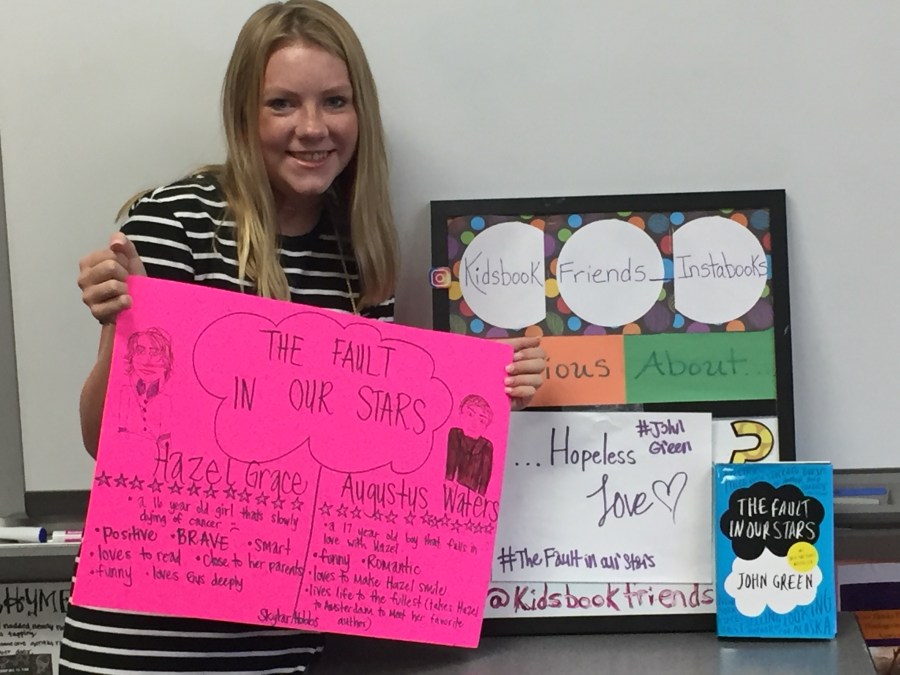 THE FAULT
IN OUR STARS
Hazel Grace
• a 16 year old girl thats slowly
dying of cancer
• Positive • BRAVE • smart
• loves to read • Close to her parents
• funny • loves Gus deeply
Augustus Waters
• a 17 year old boy that falls in
love with Hazel
• funny • ROMANTIC
• loves to make Hazel smile
• lives life to the fullest (takes Hazel
to Amsterdam to meet her favorite
author)
Kidsbook Friends_Instabooks
ious About...
...Hopeless
#John
Green
Love
#The Fault in our stars
@Kidsbookfriends
?
THE FAULT
IN OUR STARS
JOHN GREEN
ALASKA
HYME